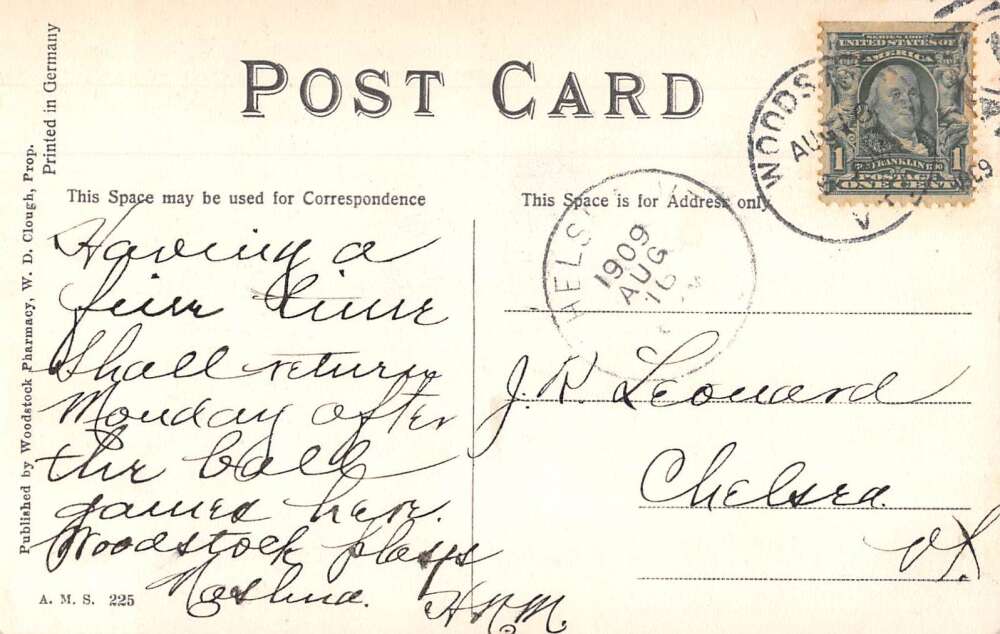 POST CARD
This Space may be used for Correspondence
This Space is for Address only
Having a
fine time
Shall return
Monday after
the ball
games here.
Woodstock plays
Nashua. H.N.M.
J. K. Leonard
Chelsea.
Vt.
WOODS
AUG
V
HELS
1909
AUG
16
SERIES 1902
UNITED STATES OF
AMERICA
1 FRANKLIN 1
POSTAGE
ONE CENT
Published by Woodstock Pharmacy, W. D. Clough, Prop.
Printed in Germany
A. M. S. 225